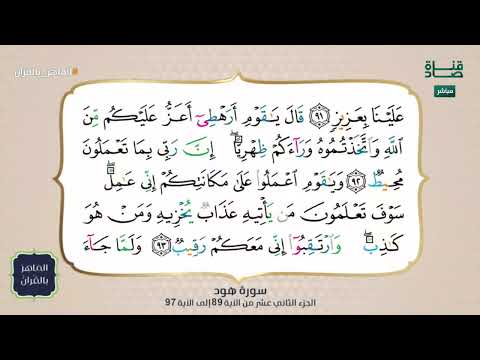 #الماهر_بالقرآن
قناة
صاد
مباشر
عَلَيْنَا بِعَزِيزٍ ٩١ قَالَ يَٰقَوْمِ أَرَهْطِىٓ أَعَزُّ عَلَيْكُم مِّنَ
ٱللَّهِ وَٱتَّخَذْتُمُوهُ وَرَآءَكُمْ ظِهْرِيًّا ۖ إِنَّ رَبِّى بِمَا تَعْمَلُونَ
مُحِيطٌ ٩٢ وَيَٰقَوْمِ ٱعْمَلُوا۟ عَلَىٰ مَكَانَتِكُمْ إِنِّى عَٰمِلٌ ۖ
سَوْفَ تَعْلَمُونَ مَن يَأْتِيهِ عَذَابٌ يُخْزِيهِ وَمَنْ هُوَ
كَٰذِبٌ ۖ وَٱرْتَقِبُوٓا۟ إِنِّى مَعَكُمْ رَقِيبٌ ٩٣ وَلَمَّا جَآءَ
الماهر
بالقرآن
سورة هود
الجزء الثاني عشر من الآية 89 إلى الآية 97